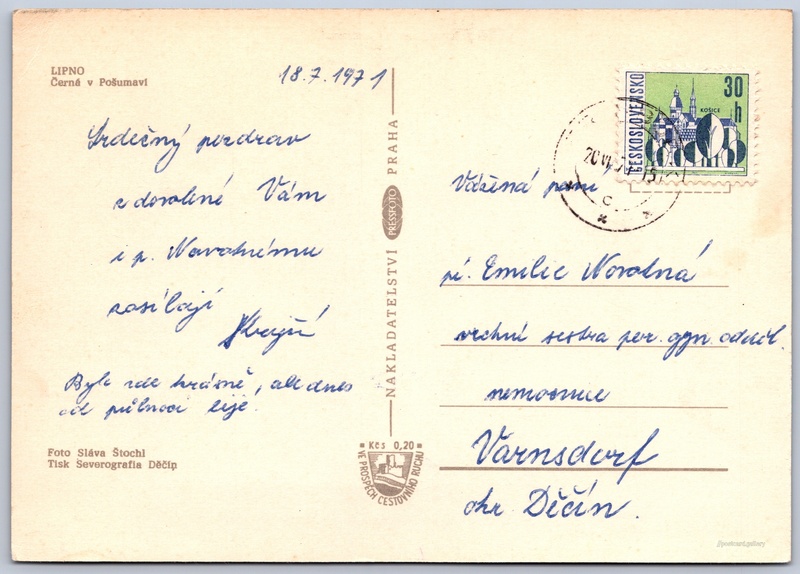 LIPNO
Černá v Pošumaví
18.7.1971
Srdečný pozdrav
z dovolené Vám
i p. Novotnému
zasílají
Byla zde krásně, ale dnes
od půlnoci lije.
Foto Sláva Štochl
Tisk Severografia Děčín
NAKLADATELSTVÍ PRESSFOTO PRAHA
Kčs 0,20
VE PROSPĚCH CESTOVNÍHO RUCHU
ČESKOSLOVENSKO
30 h
KOŠICE
Vážená paní
pí. Emilie Novotná
vrchní sestra por. gyn. odděl.
nemocnice
Varnsdorf
okr. Děčín.